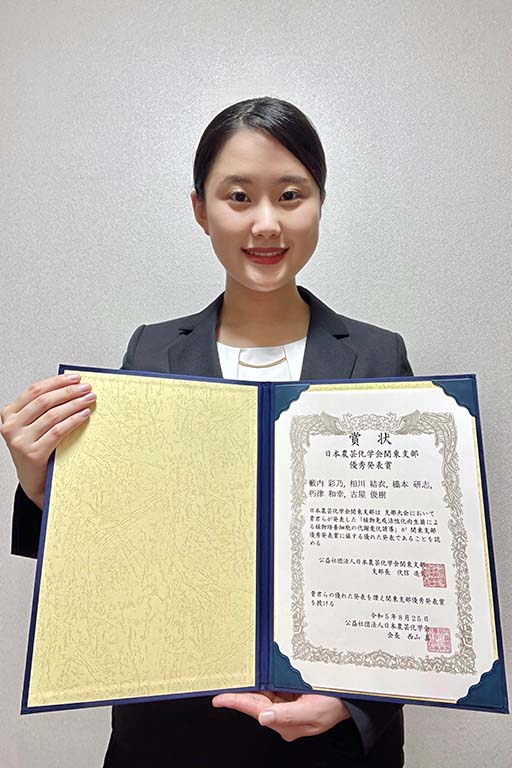 賞状
日本農芸化学会関東支部
優秀発表賞
籔内 彩乃, 相川 結衣, 橋本 研志,
朽津 和幸, 古屋 俊樹
日本農芸化学会関東支部は 支部大会において
貴君らが発表した「植物免疫活性化的生菌に
よる植物培養細胞の代謝変化誘導」が 関東支部
優秀発表賞に値する優れた発表であることを認
める
公益社団法人日本農芸化学会関東支部
支部長 伏信 進
貴君らの優れた発表を讃え関東支部優秀発表賞
を授ける
令和5年8月25日
公益社団法人日本農芸化学会
会長 西山